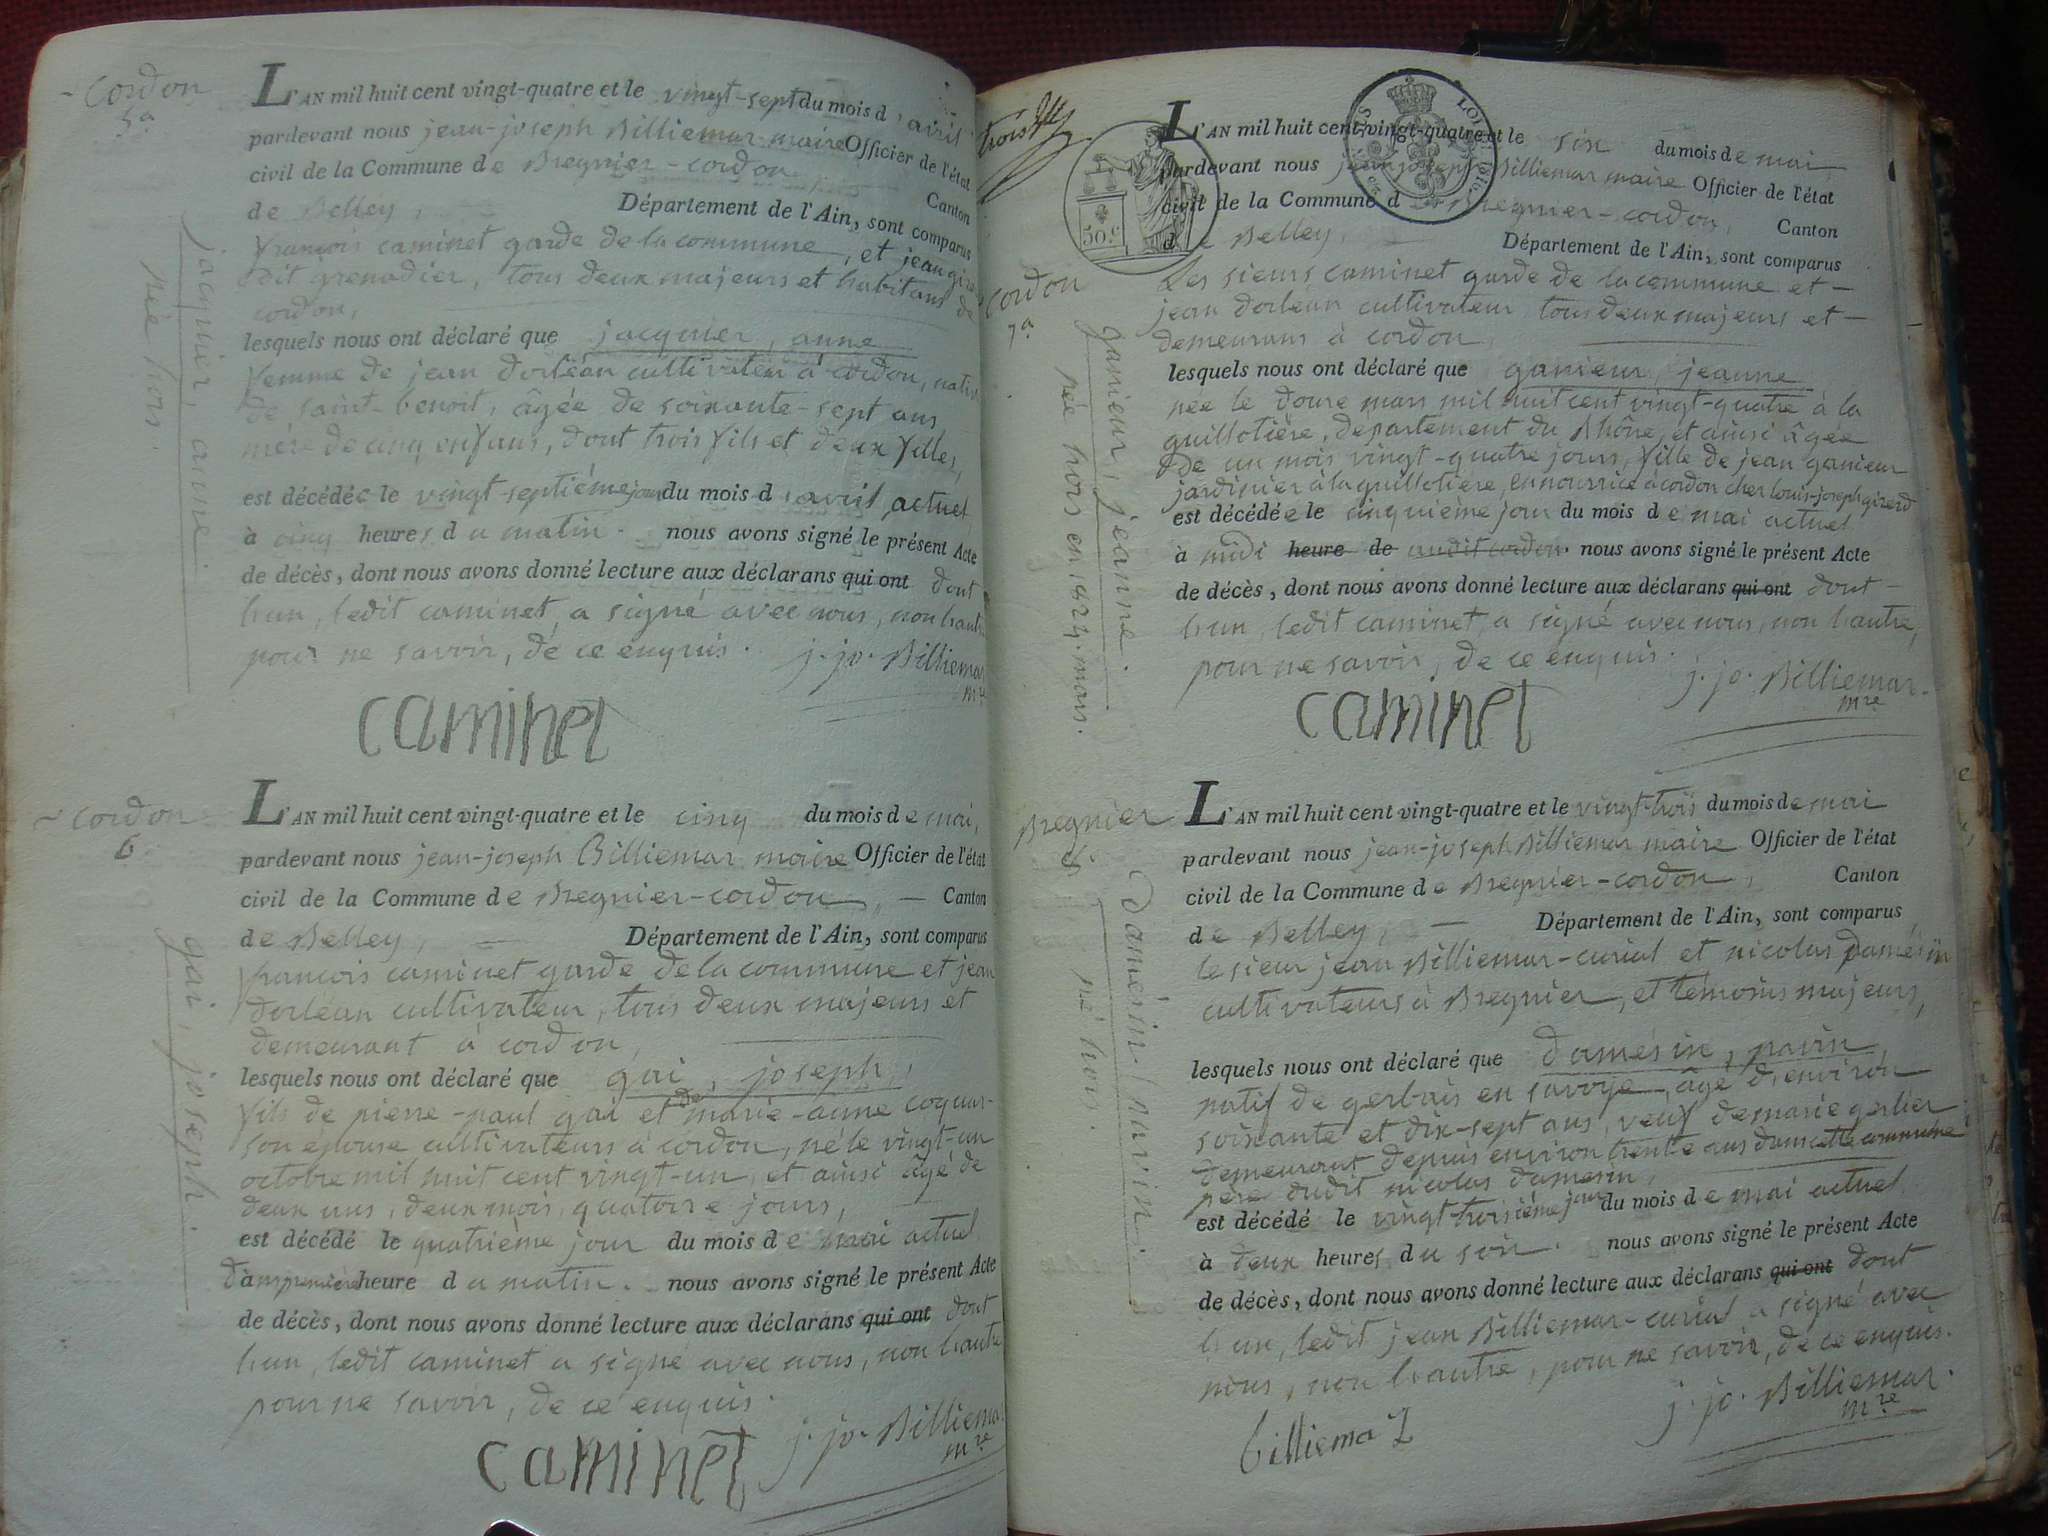 Cordon
5ª
L'AN mil huit cent vingt-quatre et le vingt-sept du mois d'avril
pardevant nous jean-joseph Billiemar maire Officier de l'état
civil de la Commune de Bregnier-cordon Canton
de Belley, Département de l'Ain, sont comparus
françois caminet garde de la commune, et jean
dit grenadier, tous deux majeurs et habitans de
cordon,
lesquels nous ont déclaré que jacquier, anne
femme de jean dorléan cultivateur à cordon, native
de saint-benoit, âgée de soixante-sept ans
mère de cinq enfans, dont trois fils et deux filles,
est décédée le vingt-septième jour du mois d'avril actuel
à cinq heures du matin. nous avons signé le présent Acte
de décès, dont nous avons donné lecture aux déclarans qui ont dont
l'un, ledit caminet, a signé avec nous, non l'autre
pour ne savoir, de ce enquis. j. jo. Billiemar
mre
caminet
jacquier, anne
née hors.
Cordon
6.
L'AN mil huit cent vingt-quatre et le cinq du mois de mai,
pardevant nous jean-joseph Billiemar maire Officier de l'état
civil de la Commune de Bregnier-cordon, Canton
de Belley, Département de l'Ain, sont comparus
françois caminet garde de la commune et jean
dorléan cultivateur, tous deux majeurs et
demeurant à cordon,
lesquels nous ont déclaré que gai, joseph,
fils de pierre-paul gai et de marie-anne coquar-
son épouse cultivateurs à cordon, né le vingt-un
octobre mil huit cent vingt-un, et ainsi âgé de
deux ans, deux mois, quatorze jours,
est décédé le quatrième jour du mois de mai actuel
à heure du matin. nous avons signé le présent Acte
de décès, dont nous avons donné lecture aux déclarans qui ont dont
l'un, ledit caminet a signé avec nous, non l'autre
pour ne savoir, de ce enquis.
j. jo. Billiemar
mre
caminet
gai, joseph.
trois
50.c
LOUIS
Cordon
7ª
L'AN mil huit cent vingt-quatre et le six du mois de mai,
pardevant nous jean joseph Billiemar maire Officier de l'état
civil de la Commune de Bregnier-cordon, Canton
de Belley, Département de l'Ain, sont comparus
Les sieurs caminet garde de la commune et
jean dorléan cultivateur tous deux majeurs et
demeurans à cordon,
lesquels nous ont déclaré que ganieur, jeanne
née le douze mars mil huit cent vingt-quatre à la
guillotière, département du Rhône, et ainsi âgée
de un mois vingt-quatre jours, fille de jean ganieur
jardinier à la guillotière, en nourrice à cordon chez louis-joseph girerd
est décédée le cinquième jour du mois de mai actuel
à midi heure de audit cordon. nous avons signé le présent Acte
de décès, dont nous avons donné lecture aux déclarans qui ont dont
l'un, ledit caminet, a signé avec nous, non l'autre,
pour ne savoir, de ce enquis.
j. jo. Billiemar.
mre
caminet
ganieur, jeanne.
née hors en 1824. mars.
Bregnier
L'AN mil huit cent vingt-quatre et le vingt-trois du mois de mai
pardevant nous jean-joseph Billiemar maire Officier de l'état
civil de la Commune de Bregnier-cordon, Canton
de Belley, Département de l'Ain, sont comparus
le sieur jean Billiemar-curial et nicolas Damésin
cultivateurs à Bregnier, et témoins majeurs,
lesquels nous ont déclaré que damésin, navin
natif de gerbais en savoye, âgé d'environ
soixante et dix-sept ans, veuf de marie gerlier
demeurant depuis environ trente ans dans cette commune
père dudit nicolas damesin,
est décédé le vingt troisième jour du mois de mai actuel
à deux heures du soir. nous avons signé le présent Acte
de décès, dont nous avons donné lecture aux déclarans qui ont dont
l'un, ledit jean Billiemar-curial a signé avec
nous, non l'autre, pour ne savoir, de ce enquis.
j. jo. Billiemar.
mre
billiema
Damésin, navin.
né hors.